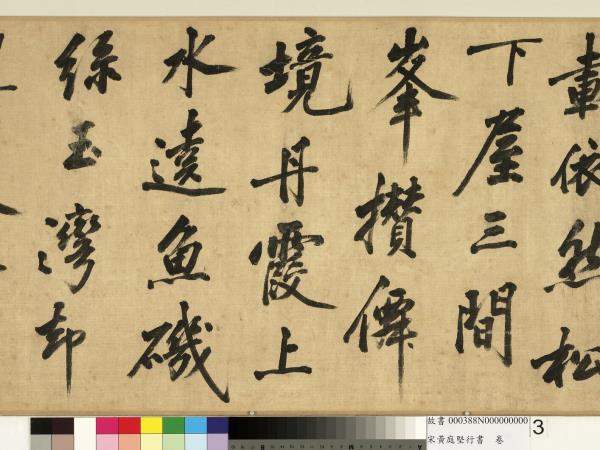 載依然松
下屋三間
峯攢僊
境丹霞上
水遶魚磯
綠玉灣却
故書 000388N000000000
宋黃庭堅行書 卷
3